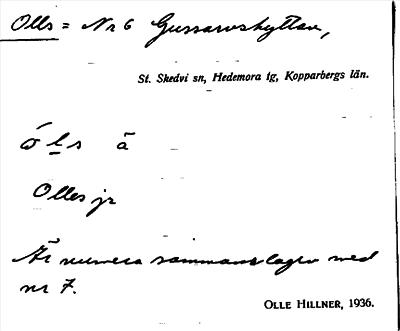 Olls = Nr 6 Gussarvshyttan,
St. Skedvi sn, Hedemora tg, Kopparbergs län.
ó l s ā
Olles jr
Är numera sammanslagen med
nr 7.
OLLE HILLNER, 1936.